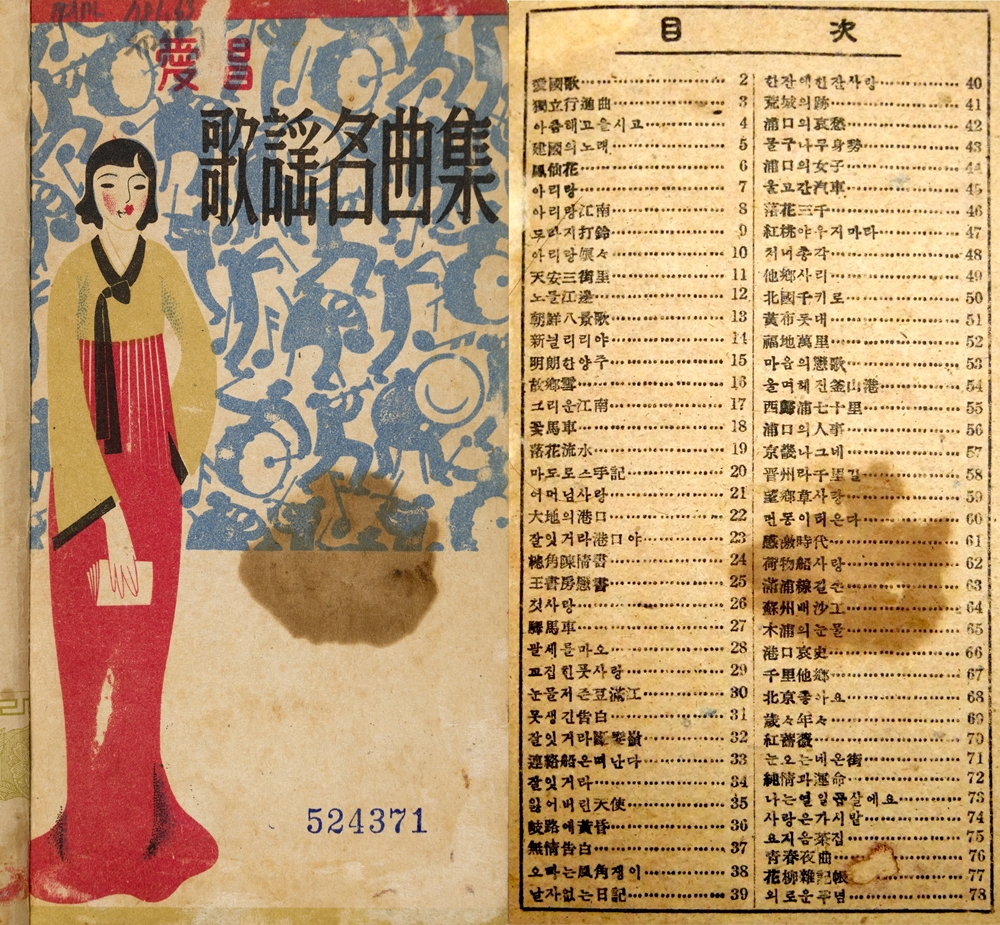 愛昌
歌謠名曲集
524371
目 次
愛國歌 2
獨立行進曲 3
아츰해고을시고 4
建國의노래 5
鳳仙花 6
아리랑 7
아리랑江南 8
도라지打鈴 9
아리랑 10
天安三街里 11
노들江邊 12
朝鮮八景歌 13
新늴리리야 14
明朗한양주 15
故鄕雪 16
그리운江南 17
꽃馬車 18
落花流水 19
마도로스手記 20
어머님사랑 21
大地의港口 22
잘잇거라港口야 23
陳情書 24
王書房戀書 25
첫사랑 26
驛馬車 27
팔세를마오 28
꼬집힌풋사랑 29
눈물저즌豆滿江 30
못생긴告白 31
잘잇거라 32
連絡船은떠난다 33
잘잇거라 34
잃어버린天使 35
岐路에黃昏 36
無情告白 37
오빠는風角쟁이 38
날자없는日記 39
한잔에한잔사랑 40
荒城의跡 41
浦口의哀愁 42
물구나무身勢 43
浦口의女子 44
울고간汽車 45
落花三千 46
紅桃야우지마라 47
처녀총각 48
他鄕사리 49
北國千키로 50
黃布돗대 51
福地萬里 52
마음의戀歌 53
울며헤진釜山港 54
西歸浦七十里 55
浦口의人事 56
京畿나그네 57
晋州라千里길 58
望鄕草사랑 59
먼동이터온다 60
感激時代 61
荷物船사랑 62
滿浦線길손 63
蘇州배沙工 64
木浦의눈물 65
港口哀史 66
千里他鄕 67
北京좋아요 68
歲々年々 69
紅薔薇 70
눈오는네온街 71
純情과運命 72
나는열일곱살에요 73
사랑은가시밭 74
요지음茶집 75
青春夜曲 76
花柳雜記帳 77
외로운무덤 78